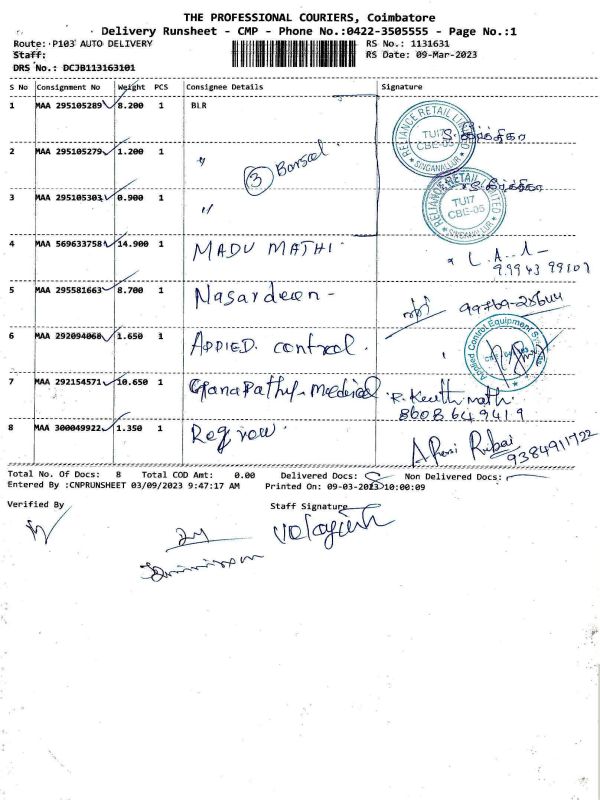 THE PROFESSIONAL COURIERS, Coimbatore
Delivery Runsheet - CMP - Phone No.:0422-3505555 - Page No.:1
Route: P103 AUTO DELIVERY RS No.: 1131631
Staff: RS Date: 09-Mar-2023
DRS No.: DCJB113163101
S No Consignment No Weight PCS Consignee Details Signature
1 MAA 295105289 8.200 1 BLR
RELIANCE RETAIL LIMITED TUI7 CBE-05 SINGANALLUR
2 MAA 295105279 1.200 1 "
3
3 MAA 295105303 0.900 1 "
RELIANCE RETAIL LIMITED TUI7 CBE-05 SINGANALLUR
4 MAA 569633758 14.900 1 MADU MATHI.
5 MAA 295581663 8.700 1 Nasardeen -
6 MAA 292094068 1.650 1 APPIED. control.
Applied Control Equipment Service
7 MAA 292154571 10.650 1 Ganapathy. medical
8608649419
8 MAA 300049922 1.350 1
9384911722
Total No. Of Docs: 8 Total COD Amt: 0.00 Delivered Docs: 8 Non Delivered Docs:
Entered By :CNPRUNSHEET 03/09/2023 9:47:17 AM Printed On: 09-03-2023 10:00:09
Verified By Staff Signature